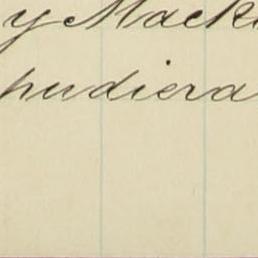 y Mack
pudiera